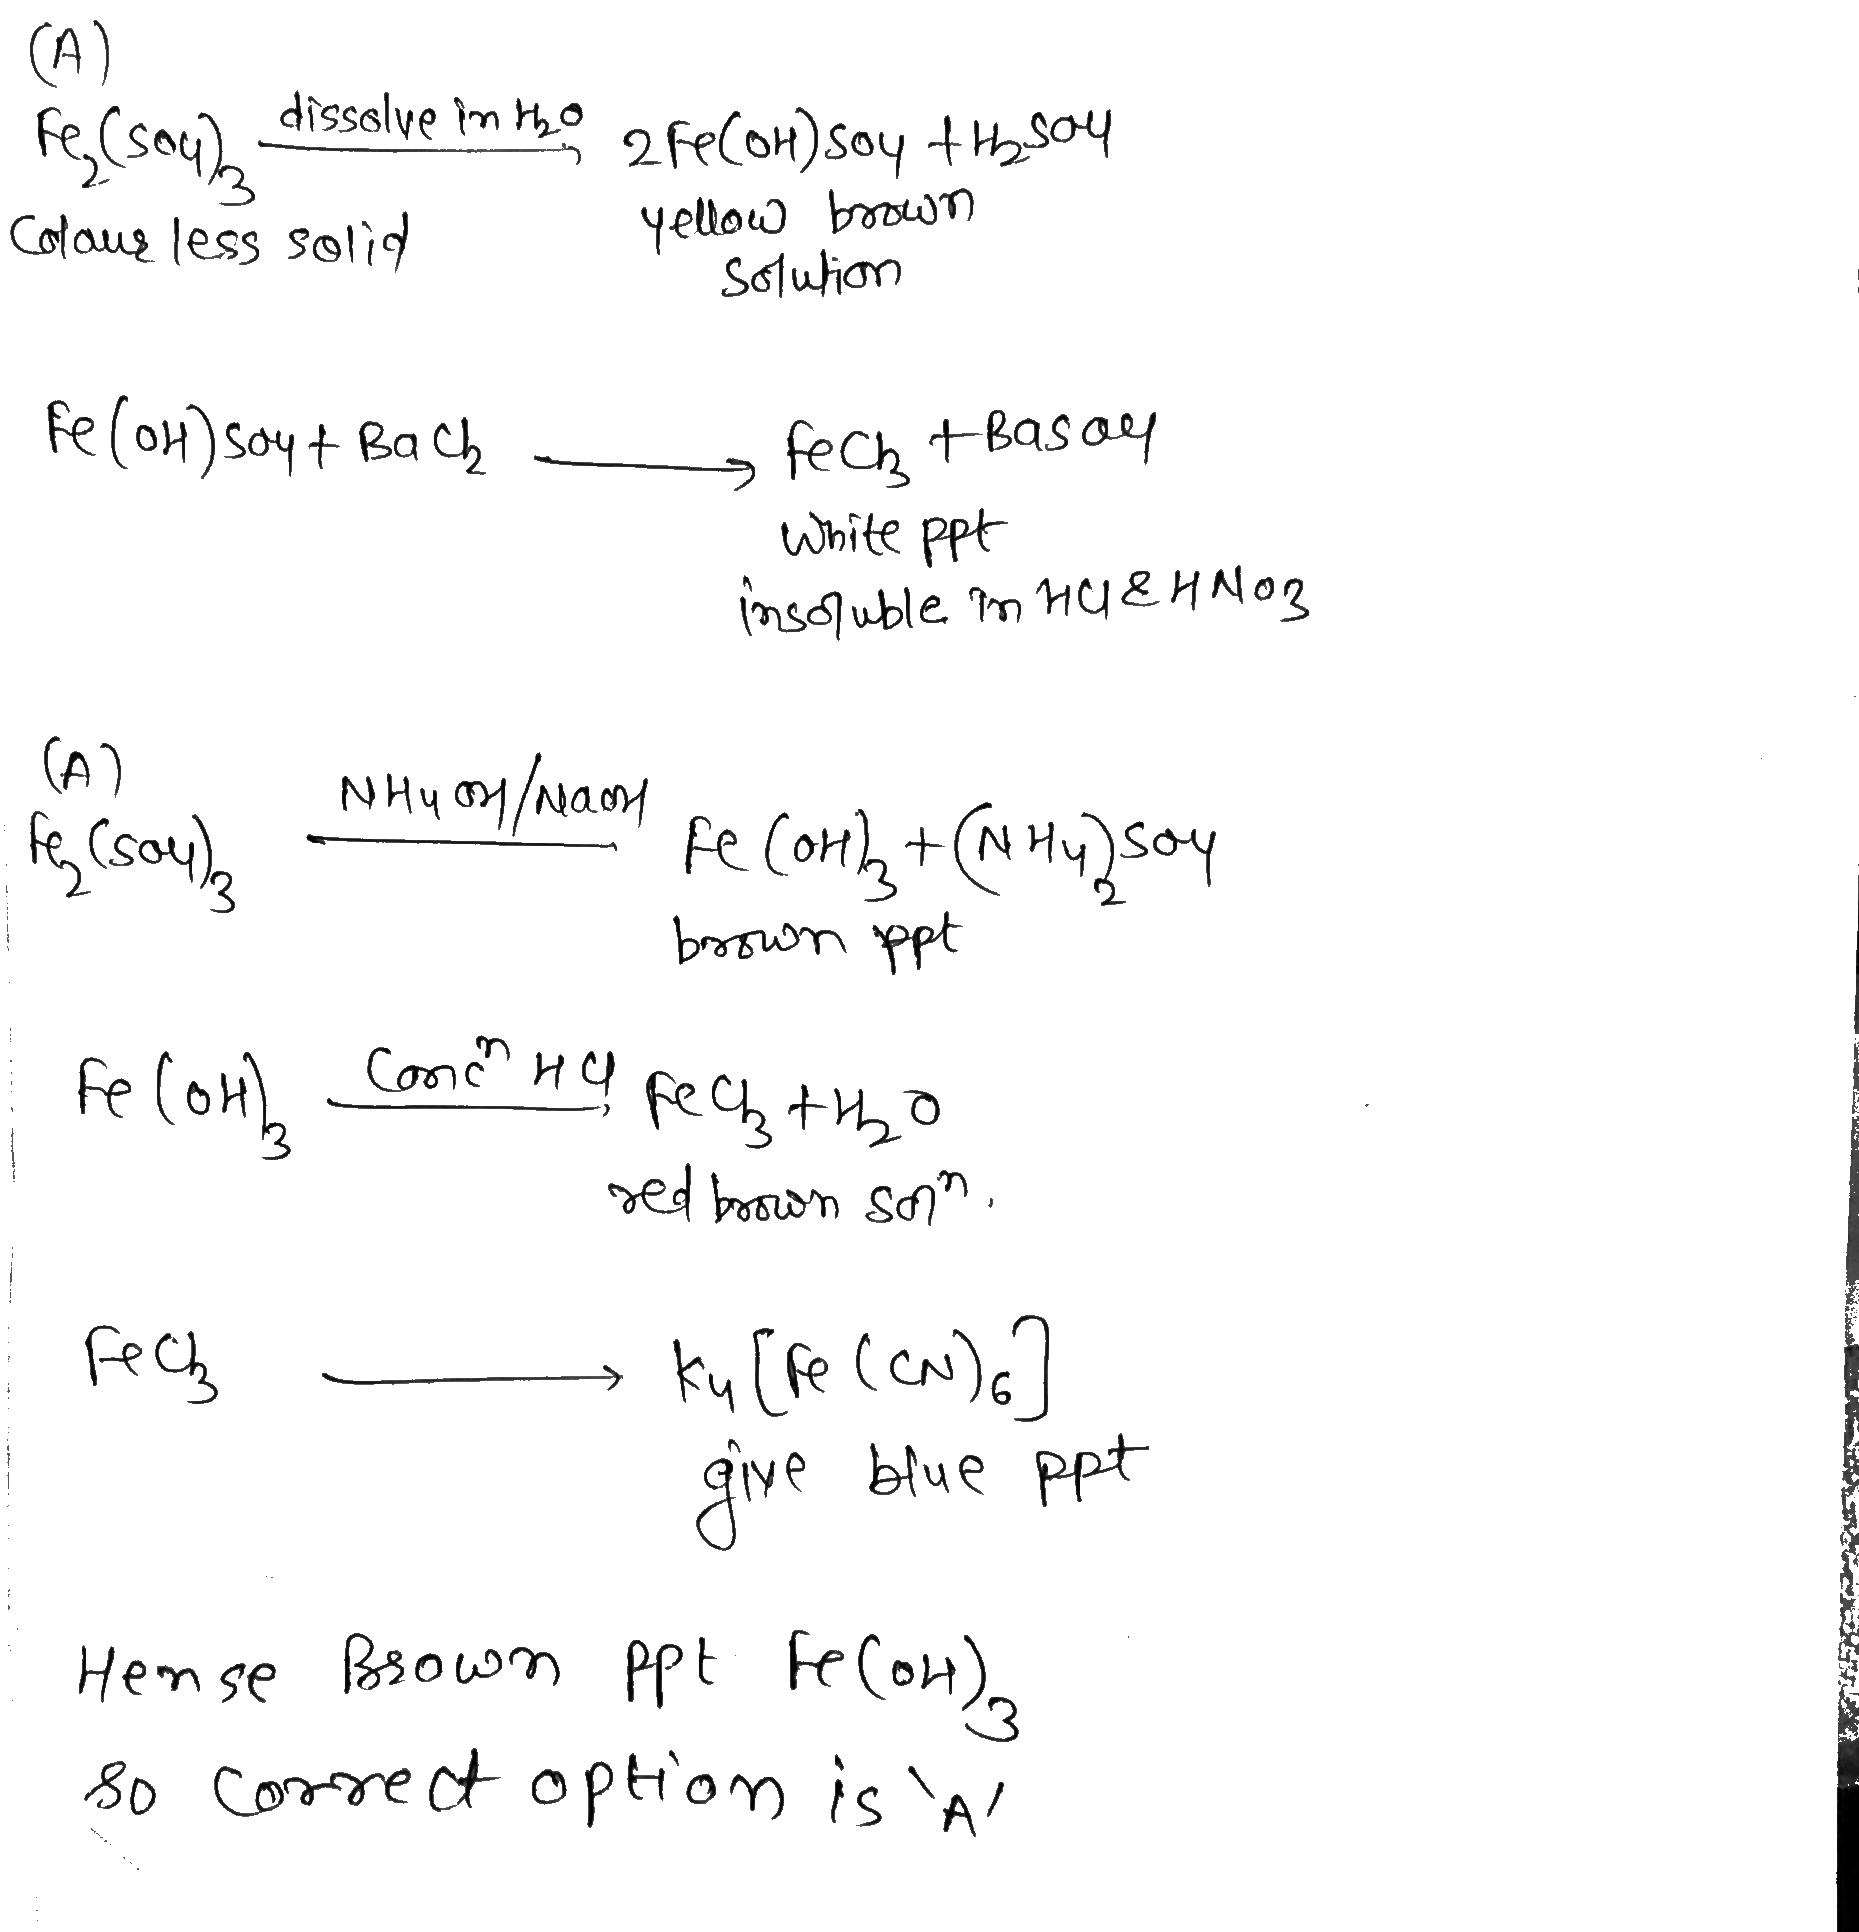 (A)
Fe2(SO4)3 dissolve in H2O → 2Fe(OH)SO4 + H2SO4
Colour less solid yellow brown
solution
Fe(OH)SO4 + BaCl2 → FeCl3 + BaSO4
White ppt
insoluble in HCl & HNO3
(A)
Fe2(SO4)3 NH4OH/NaOH Fe(OH)3 + (NH4)2SO4
brown ppt
Fe(OH)3 Concn HCl → FeCl3 + H2O
red brown soln.
FeCl3 → K4[Fe(CN)6]
give blue ppt
Hense Brown ppt Fe(OH)3
so correct option is 'A'